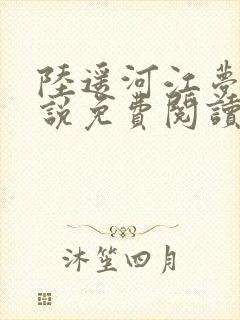 陸遥河江夢
說免費閱讀
沐笙四月